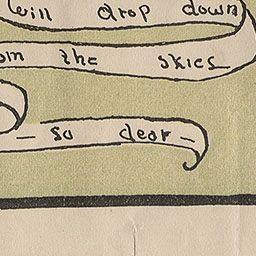 will drop down
om the skies
— so dear —